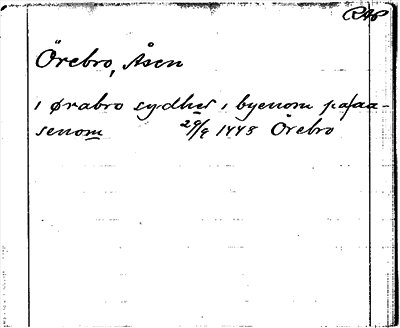 RAP
Örebro, Åsen
i ørabro sydhes i byenom pa aa-
senom 29/9 1448 Örebro